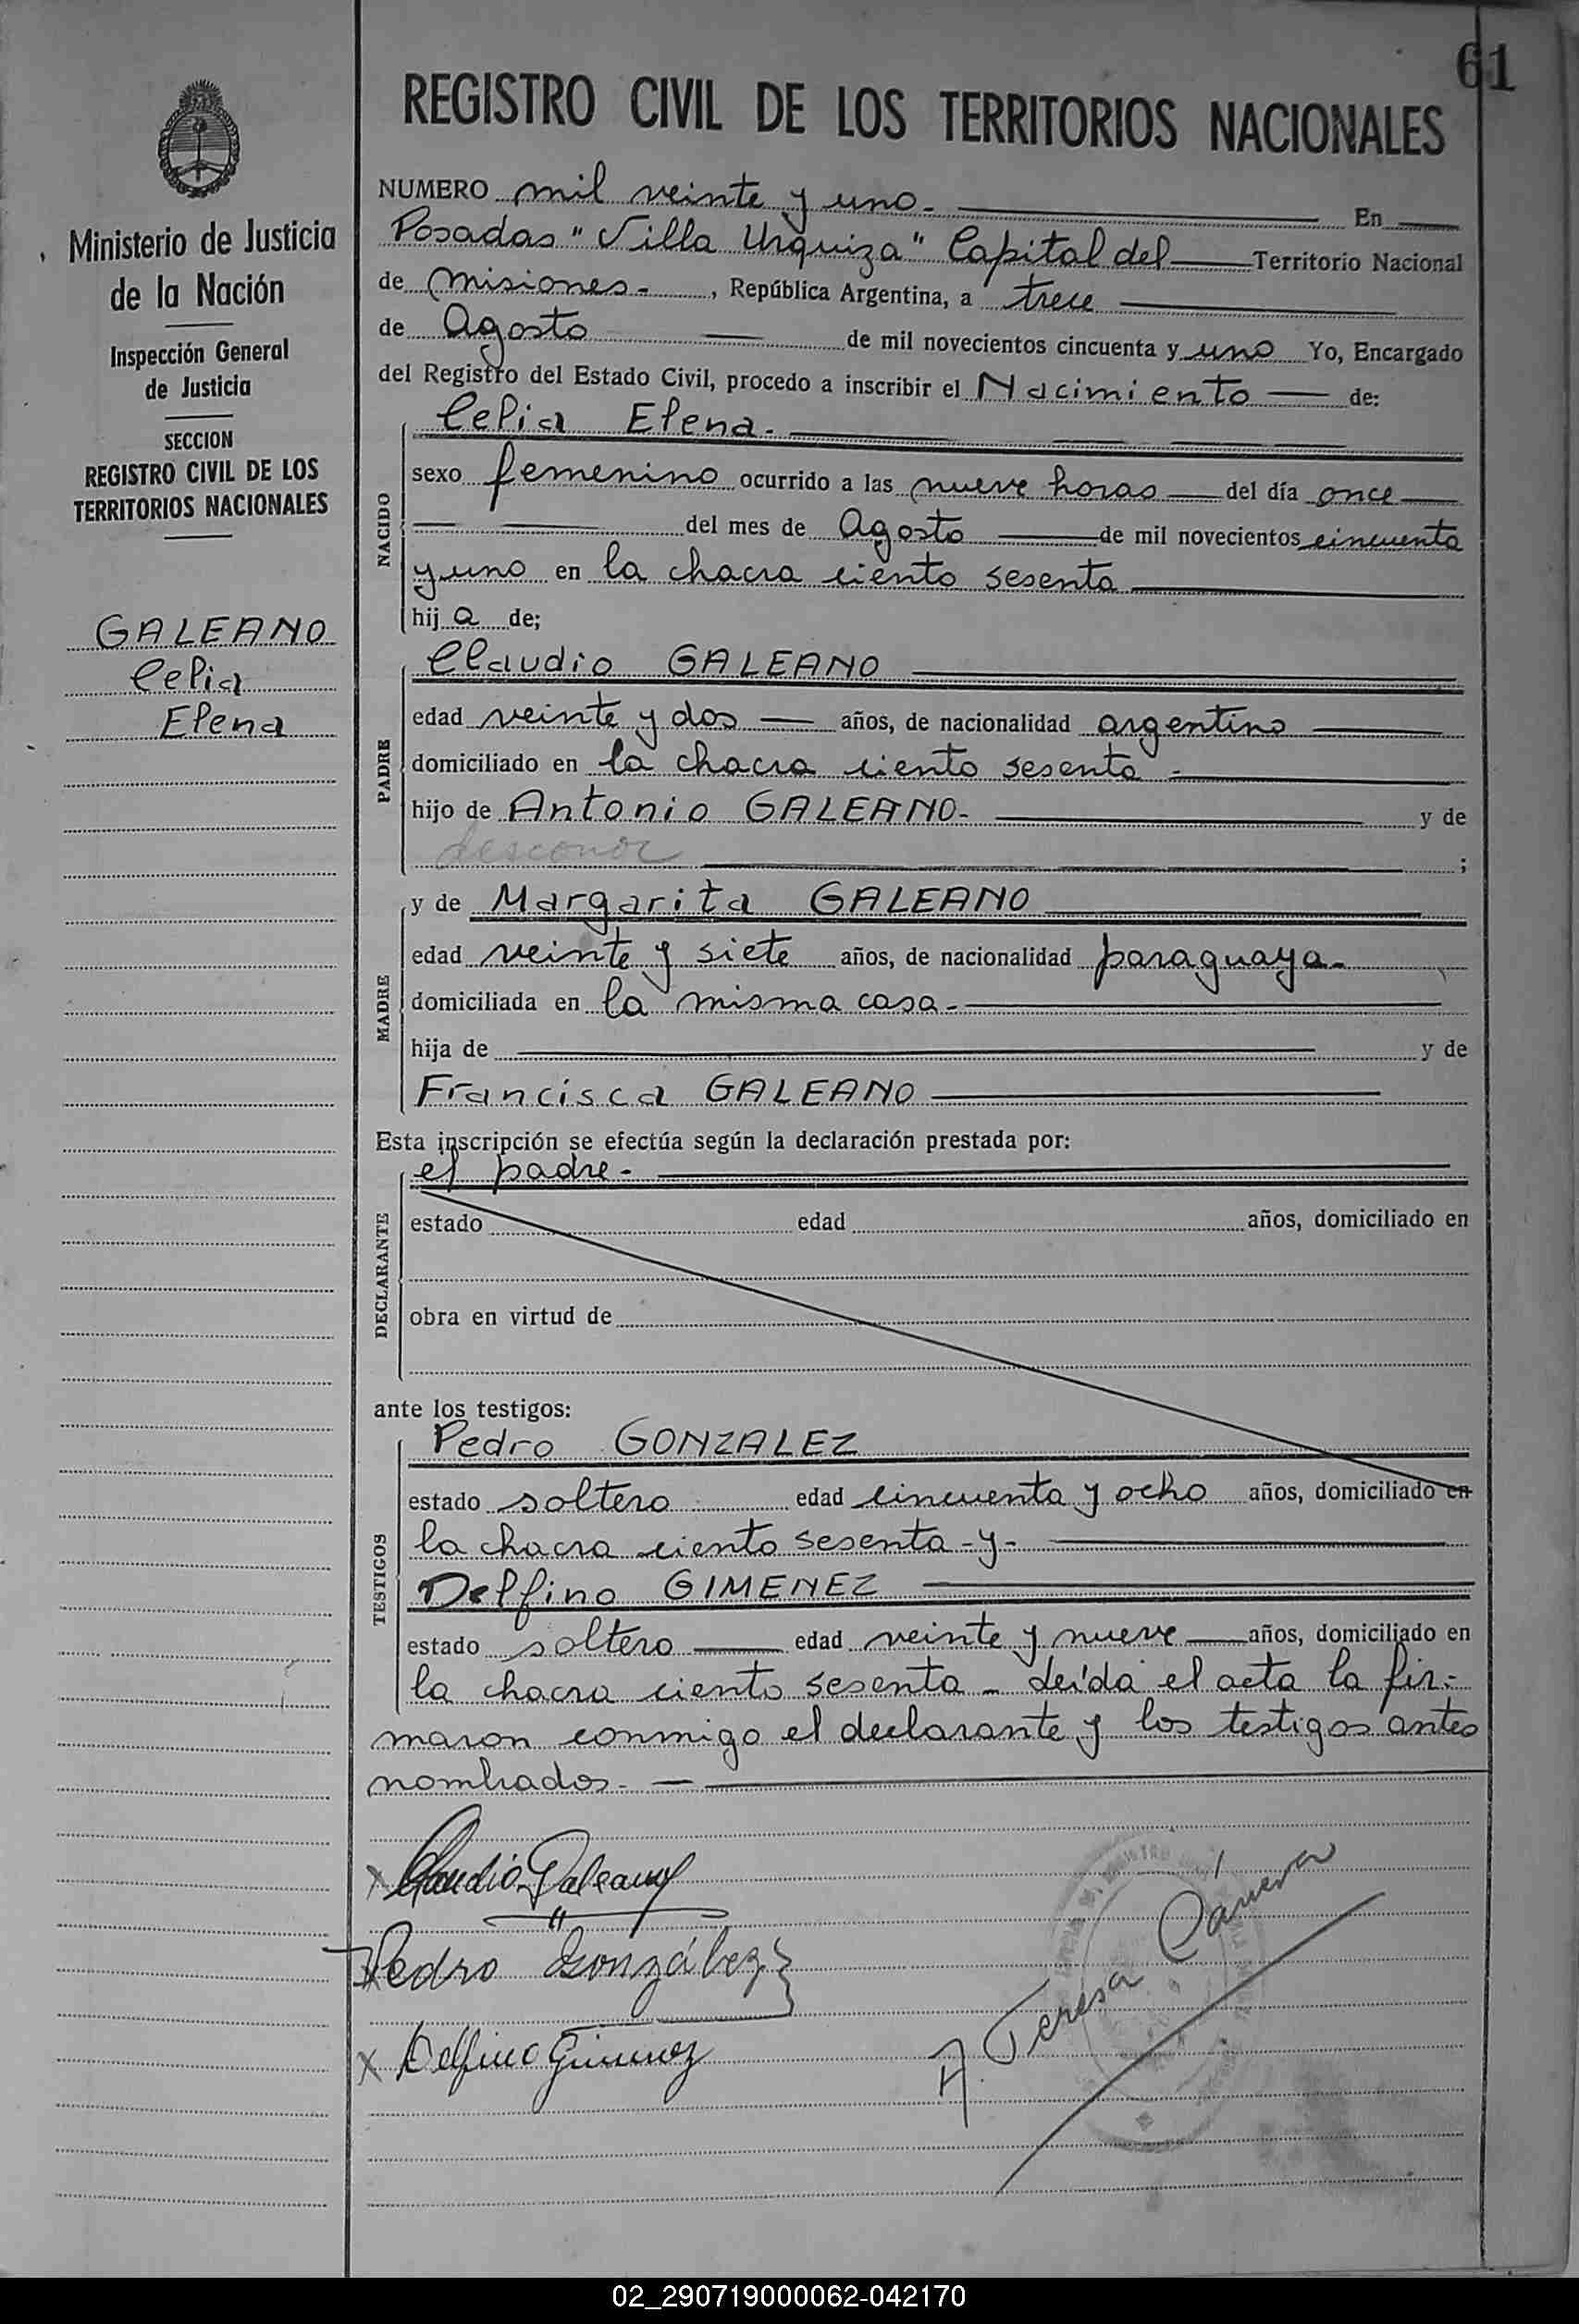 61
REGISTRO CIVIL DE LOS TERRITORIOS NACIONALES
Ministerio de Justicia
de la Nación
Inspección General
de Justicia
SECCION
REGISTRO CIVIL DE LOS
TERRITORIOS NACIONALES
GALEANO
Celia
Elena
NUMERO mil veinte y uno.- En
Posadas "Villa Urquiza" Capital del Territorio Nacional
de Misiones.- , República Argentina, a trece
de Agosto de mil novecientos cincuenta y uno Yo, Encargado
del Registro del Estado Civil, procedo a inscribir el Nacimiento de:
NACIDO
Celia Elena.-
sexo femenino ocurrido a las nueve horas del día once
del mes de Agosto de mil novecientos cincuenta
y uno en la chacra ciento sesenta
hija de;
PADRE
Claudio GALEANO
edad veinte y dos años, de nacionalidad argentino
domiciliado en la chacra ciento sesenta -
hijo de Antonio GALEANO- y de
desconoc ;
MADRE
y de Margarita GALEANO
edad veinte y siete años, de nacionalidad paraguaya-
domiciliada en la misma casa.-
hija de y de
Francisca GALEANO
Esta inscripción se efectúa según la declaración prestada por:
DECLARANTE
el padre-
estado edad años, domiciliado en
obra en virtud de
ante los testigos:
TESTIGOS
Pedro GONZALEZ
estado soltero edad cincuenta y ocho años, domiciliado en
la chacra ciento sesenta - y -
Delfino GIMENEZ
estado soltero edad veinte y nueve años, domiciliado en
la chacra ciento sesenta - Leída el acta la fir-
maron conmigo el declarante y los testigos antes
nombrados.-
x Claudio Galeano
x Pedro González
x Delfino Gimenez
A. Teresa
02_290719000062-042170